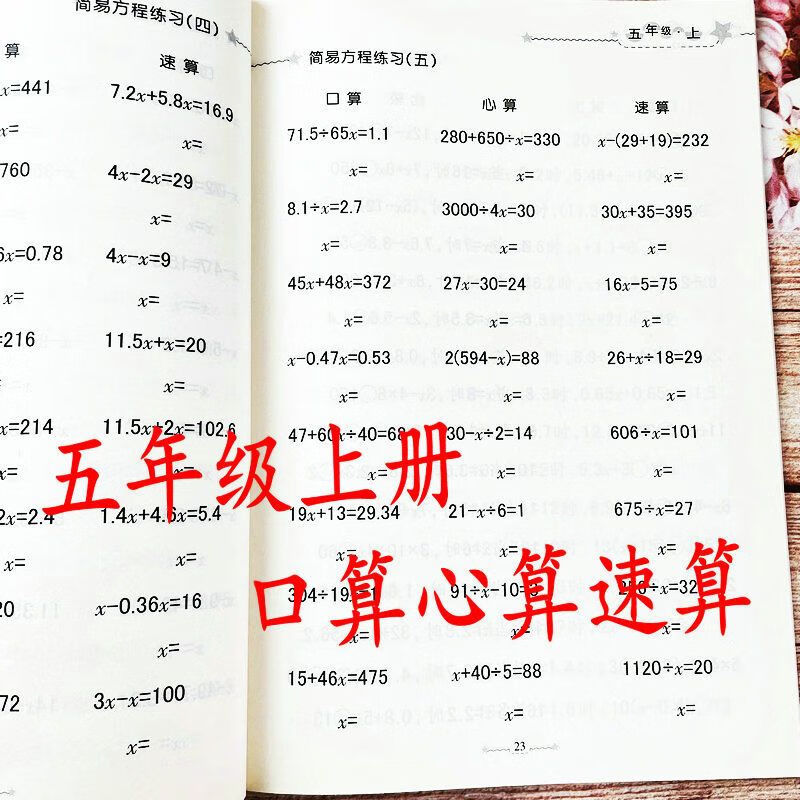 简易方程练习(四)
算 速算
x=441 7.2x+5.8x=16.9
x= x=
760 4x-2x=29
x= x=
6x=0.78 4x-x=9
x= x=
=216 11.5x+x=20
x= x=
x=214 11.5x+2x=102.6
x= x=
2x=2.4 1.4x+4.6x=5.4
x= x=
20 x-0.36x=16
x= x=
72 3x-x=100
x= x=
五年级·上
简易方程练习(五)
口算 心算 速算
71.5÷65x=1.1 280+650÷x=330 x-(29+19)=232
x= x= x=
8.1÷x=2.7 3000÷4x=30 30x+35=395
x= x= x=
45x+48x=372 27x-30=24 16x-5=75
x= x= x=
x-0.47x=0.53 2(594-x)=88 26+x÷18=29
x= x= x=
47+60x÷40=68 30-x÷2=14 606÷x=101
x= x= x=
19x+13=29.34 21-x÷6=1 675÷x=27
x= x= x=
304÷19 91÷x-10=3 x=32
x= x= x=
15+46x=475 x+40÷5=88 1120÷x=20
x= x= x=
23
五年级上册
口算心算速算